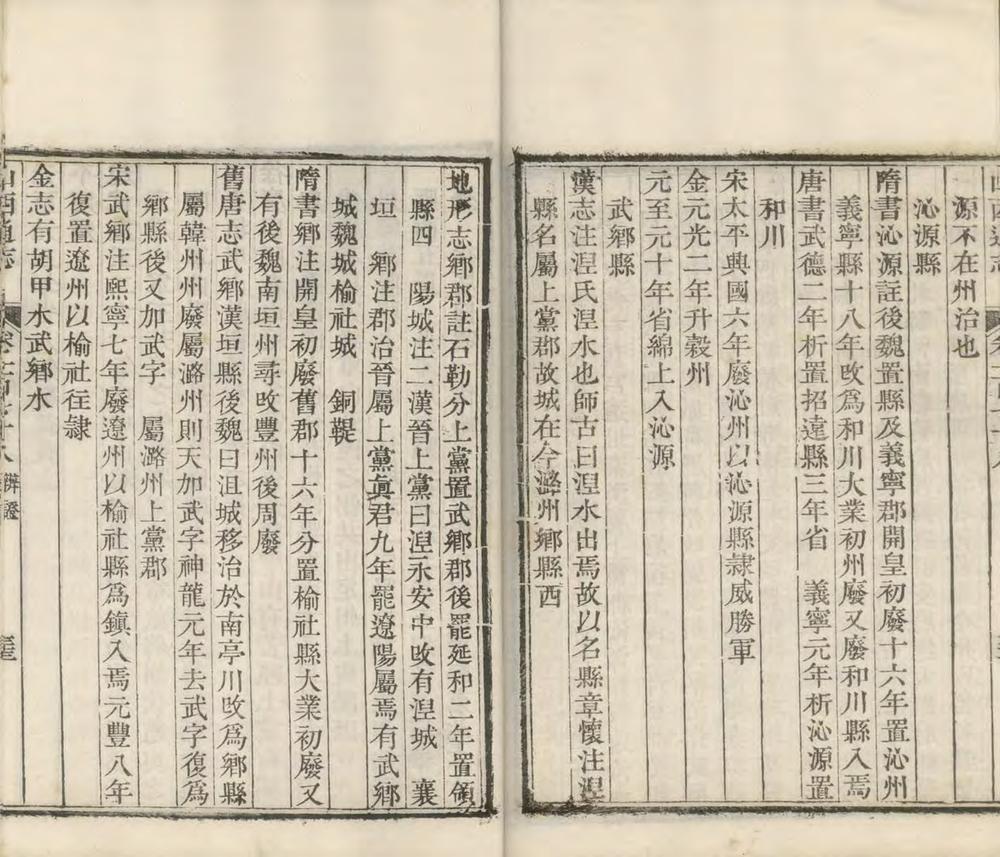 源不在州治也
沁源縣
隋書沁源註後魏置縣及義寧郡開皇初廢十六年置沁州
義寧縣十八年攺爲和川大業初州廢又廢和川縣入焉
唐書武德二年析置招遠縣三年省　義寧元年析沁源置
和川
宋太平興國六年廢沁州以沁源縣隷威勝軍
金元光二年升穀州
元至元十年省綿上入沁源
武鄉縣
漢志注湼氏湼水也師古曰湼水出焉故以名縣章懷注湼
縣名屬上黨郡故城在今潞州鄉縣西
地形志鄉郡註石勒分上黨置武鄉郡後罷延和二年置領
縣四　陽城注二漢晉上黨曰湼永安中攺有湼城　襄
垣　鄉注郡治晉屬上黨眞君九年罷遼陽屬焉有武鄉
城魏城榆社城　銅鞮
隋書鄉注開皇初廢舊郡十六年分置榆社縣大業初廢又
有後魏南垣州尋攺豐州後周廢
舊唐志武鄉漢垣縣後魏曰沮城移治於南亭川攺爲鄉縣
屬韓州州廢屬潞州則天加武字神龍元年去武字復爲
鄉縣後又加武字　屬潞州上黨郡
宋武鄉注熙寧七年廢遼州以榆社縣爲鎮入焉元豐八年
復置遼州以榆社徃隷
金志有胡甲水武鄉水
山西通志
辨證